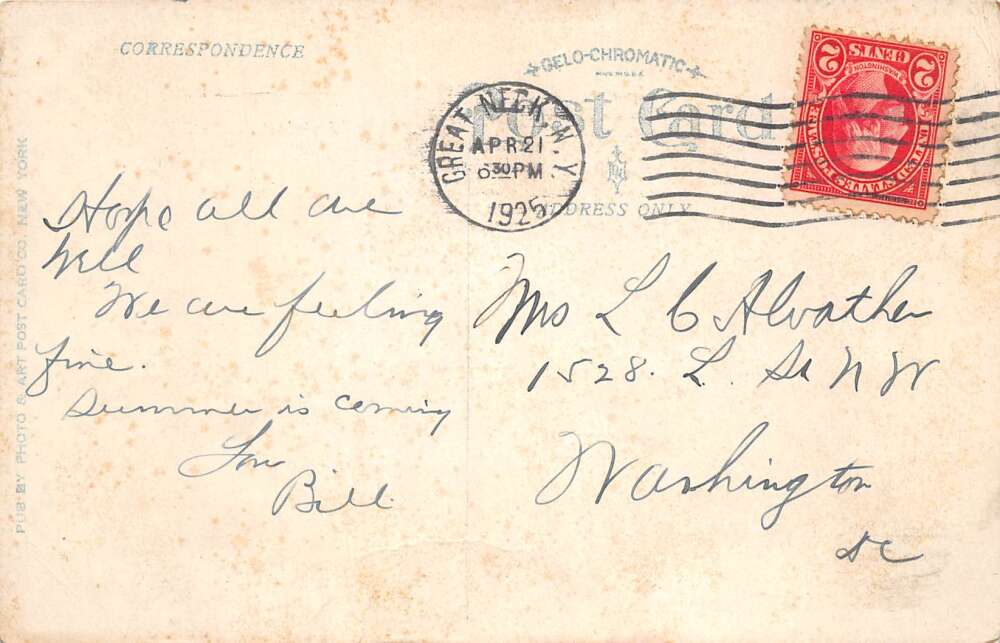 CORRESPONDENCE
GELO-CHROMATIC
Post Card
ADDRESS ONLY
GREAT NECK, N.Y.
APR 21
6 30 PM
1925
2 CENTS 2
WASHINGTON
UNITED STATES POSTAGE
PUB. BY PHOTO & ART POST CARD CO. NEW YORK
Hope all are
well
We are feeling
fine.
Summer is coming
Love
Bill
Mrs L C Alvather
1528. L. St N W
Washington
DC